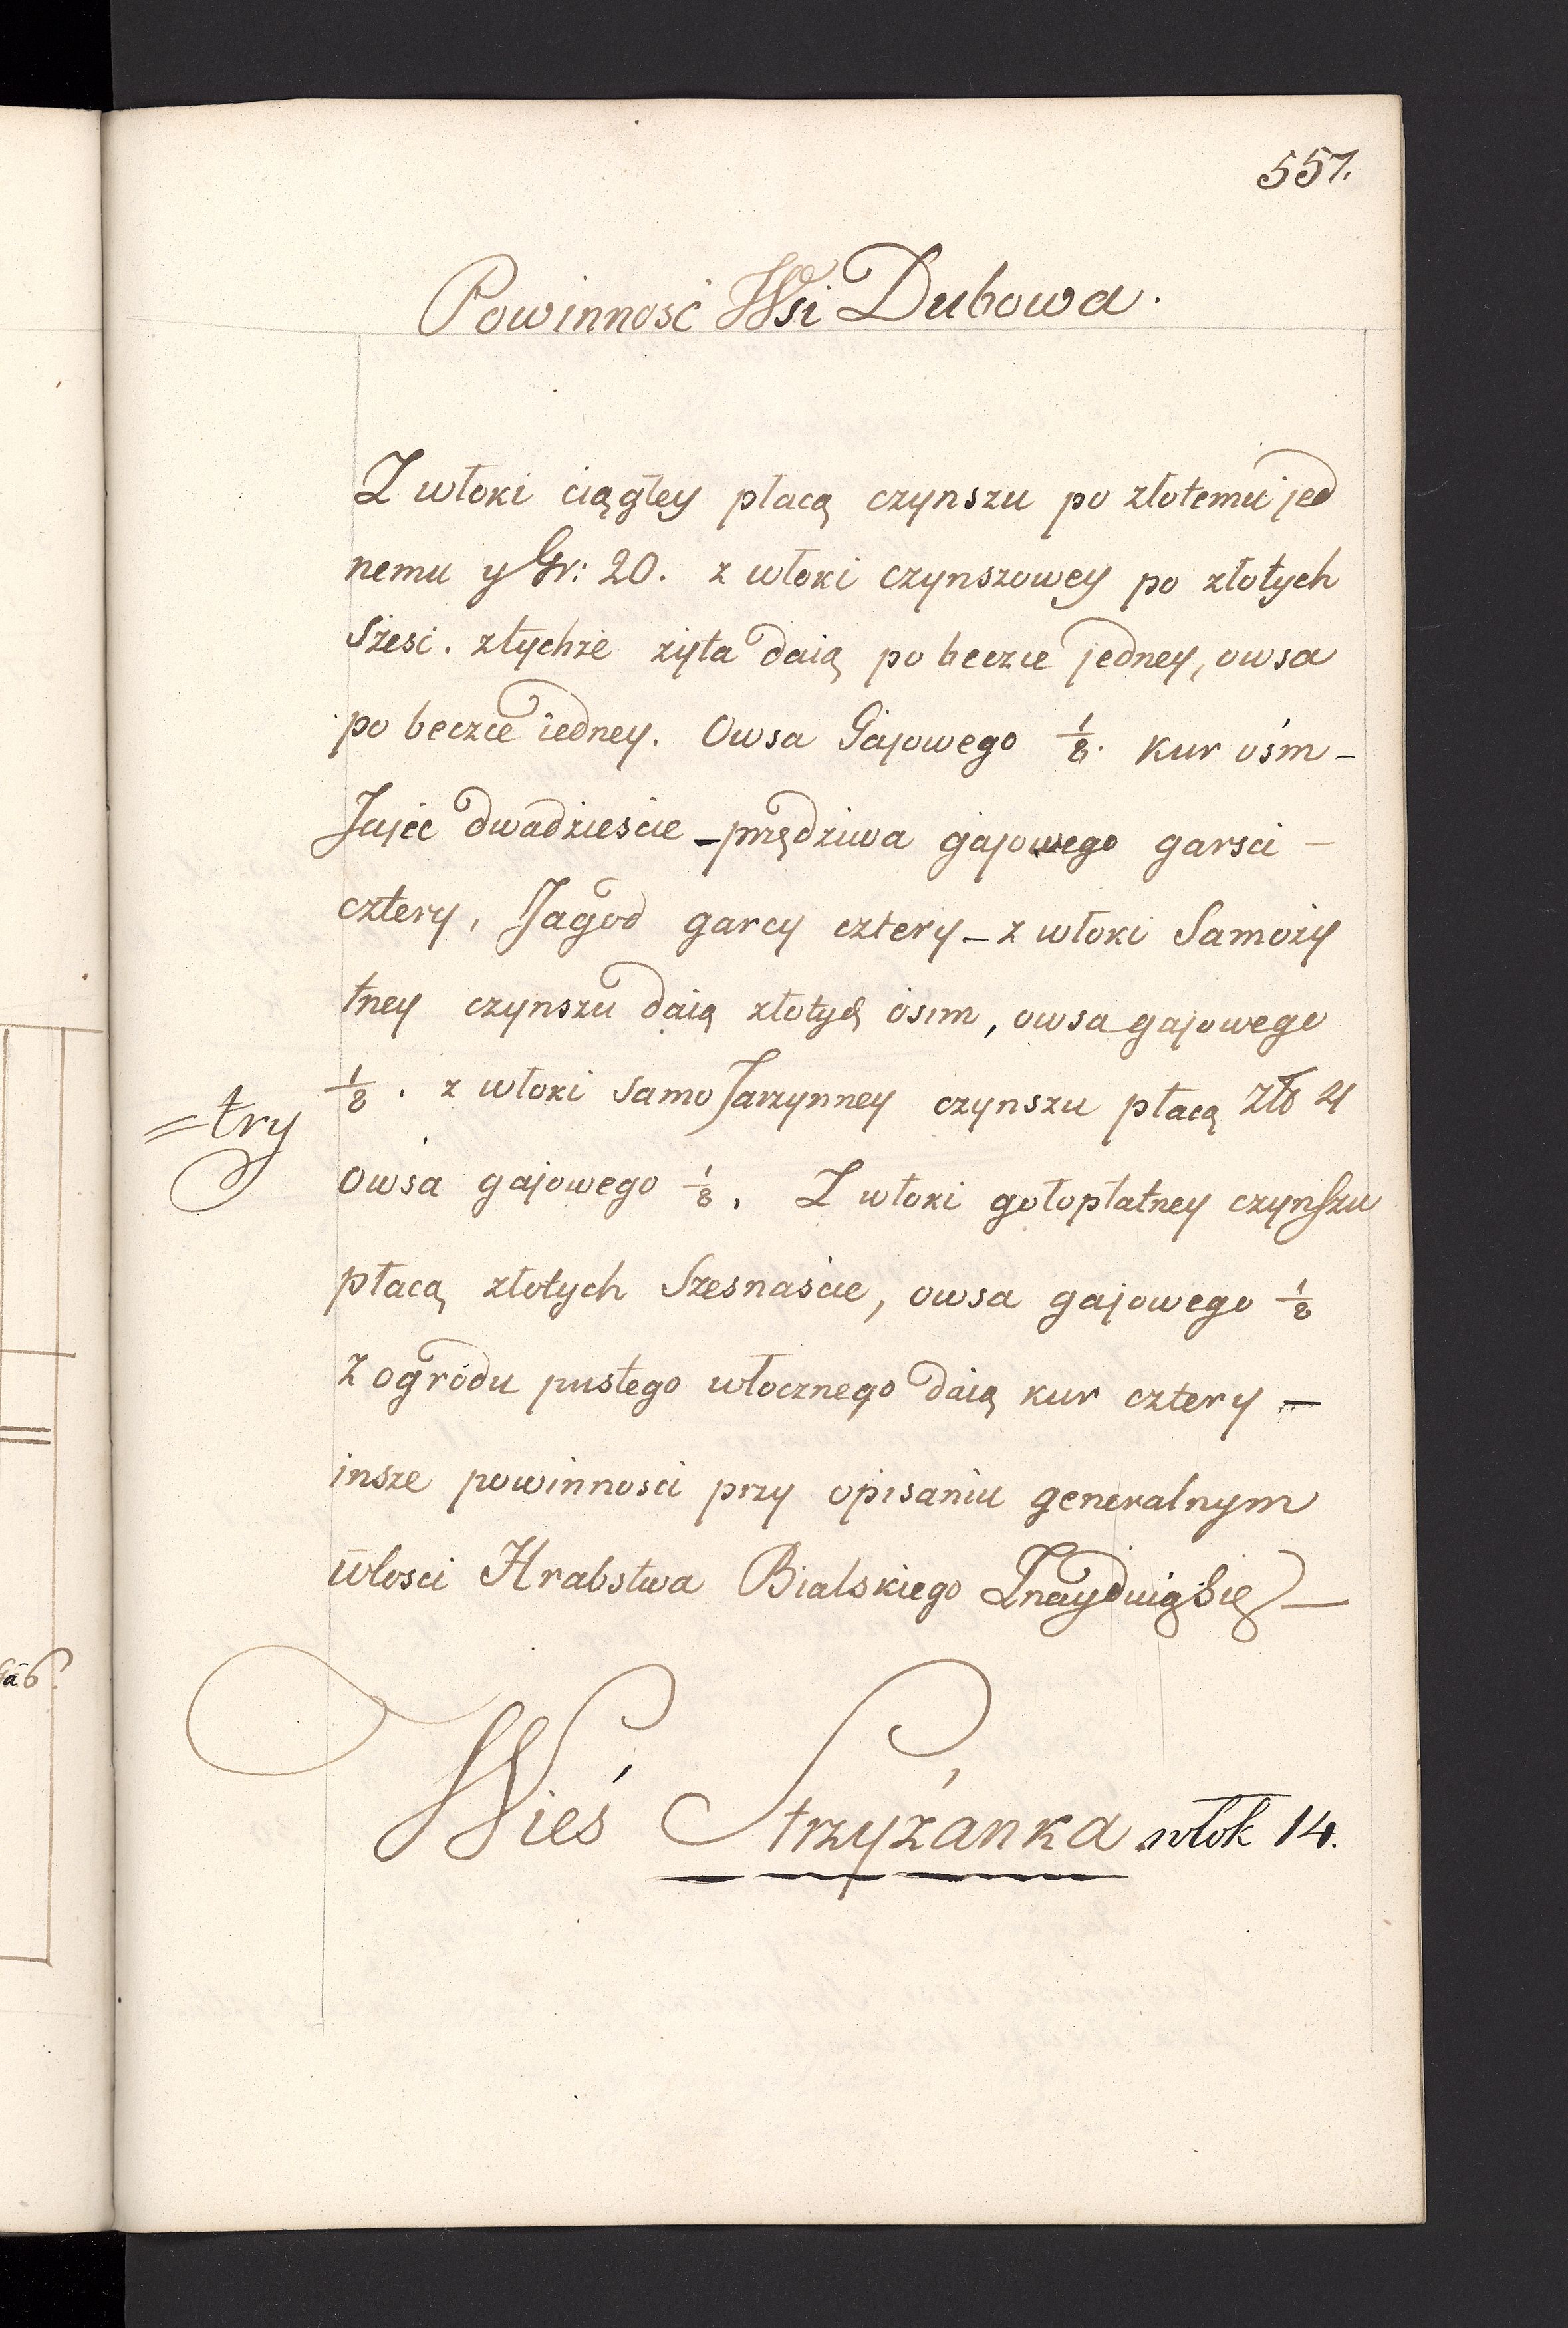 557.
Powinność Wsi Dubowa.
Z włoki ciągłey płacą czynszu po złotemu jed
nemu y Gr: 20. z włoki czynszowey po złotych
Sześć. ztychże żyta daią po beczce jedney, owsa
po beczce iedney. Owsa Gajowego 1/8. kur ośm –
Jajec dwadzieście – przędziwa gajowego garsci –
cztery, Jagod garcy cztery – z włoki Samoży
tney czynszu daią złotych osim, owsa gajowego
1/8. z włoki samo Jarzynney czynszu płacą Złt 4
=try
owsa gajowego 1/8. Z włoki gołopłatney czynszu
płacą złotych Szesnaście, owsa gajowego 1/8
z ogrodu pustego włocznego daią kur cztery –
insze powinnosci przy opisaniu generalnym
włosci Hrabstwa Bialskiego Znayduią Się –
Wieś Strzyżanka włok 14.